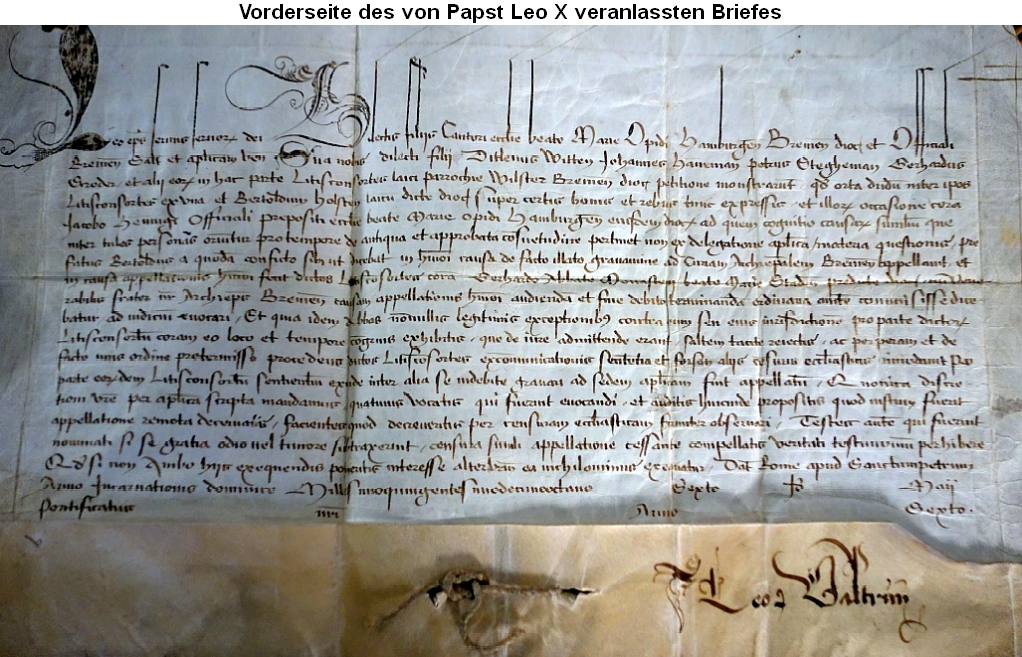 Vorderseite des von Papst Leo X veranlassten Briefes
Leo ep̄s seruus seruoꝝ dei Dilectis filijs Cantori ecclie beate Marie Opidi Hamburgen̄ Bremen̄ dioc̄ et Officiali
Bremen̄ Saltē et aplicam ben̄ Sua nobis dilecti filij Ditleuus Witten Johannes Haneman Petrus Stegheman Gerhardus
et alij eoꝝ in hac parte Litisconsortes laici parrochie Wilster Bremen̄ dioc̄ petitione monstrarunt qd orta dudū inter ipos
Litisconsortes ex vna et Bertoldum Holsten laicū dicte dioc̄ super certis bonis et rebus tunc expressis et illoꝝ occasione corā
Jacobo Hennigs Officiali prepositi ecclie beate Marie Opidi Hamburgen̄ eiusdem dioc̄ ad quem cognitio causaꝝ que
inter tales personas oriuntur pro tempore de antiqua et approbata cōsuetudine pertinet non ex delegatione aplica materia questionis pre
fatus Bertoldus a quodā ab in hmōi causa de facto illato grauamine ad Curiam Archiepalem Bremen̄ appellauit et
in causa appellationis hmōi fecit dictos Litiscōsortes corā Gerhardo Abbate Monasterij beate Marie Staden̄
rabilis frater nr̄ Archiepus Bremen̄ causam appellationis hmōi audiendā et fine debito terminandā
batur ad iudiciū euocari Et quia idem Abbas nōnullis legitimis exceptionibꝫ contra eum seu eius iurisdictionē pro parte dictoꝝ
Litisconsortū coram eo loco et tempore congruis exhibitis que de iure admittende erant saltem tacite reiectis ac perperam et de
facto iuris ordine pretermisso procedens dictos Litiscōsortes excommunicationis sententia et ecclesiasticis innodauit Pro
parte eoꝝdem Litisconsortū sentientiū exinde inter alia se indebite grauari ad sedem aplicam fuit appellatū Quocirca discre
tioni vre per aplica scripta mandamus quatinus vocatis qui fuerint euocandi et auditis hincinde propositis quod iustum fuerit
appellatione remota decernatis facientes quod decreueritis per censuram ecclesiasticam firmiter obseruari Testes autē qui fuerint
nominati si se gratia odio uel timore subtraxerint censura simili appellatione cessante compellatis veritati testimonium perhibere
Qd si non Ambo hijs exequendis poteritis interesse alter vrm ea nichilominus exequatur Dat̄ Rome apud Sanctumpetrum
Anno Incarnationis dominice Millesimoquingentesimodecimooctauo Sexto Maij
Pontificatus nri Anno Sexto.
Leo